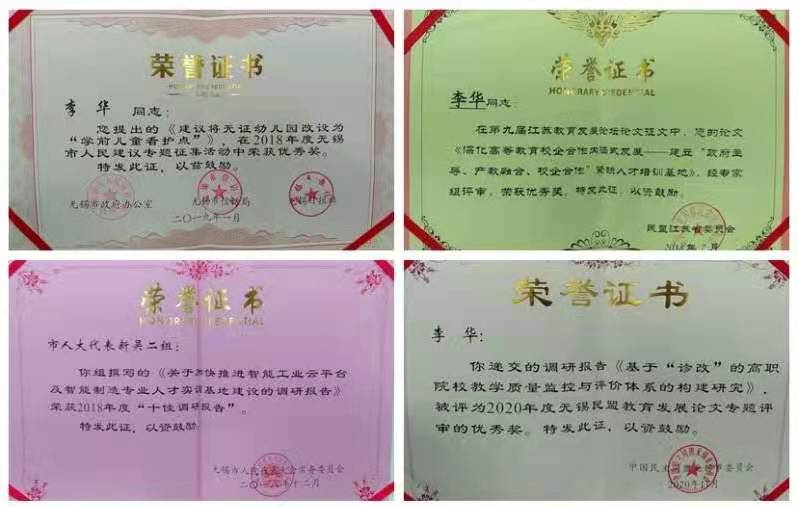 荣誉证书
HONORARY CREDENTIAL
李 华 同志:
您提出的《建议将无证幼儿园改设为
“学前儿童看护点”》,在2018年度无锡
市人民建议专题征集活动中荣获优秀奖。
特发此证,以兹鼓励。
无锡市政府办公室 无锡市信访局 无锡日报社
二〇一九年一月
荣誉证书
HONORARY CREDENTIAL
李华同志:
在第九届江苏教育发展论坛论文征文中,您的论文
《深化高等教育校企合作内涵式发展——建立“政府主
导、产教融合、校企合作”紧缺人才培训基地》,经专家
组评审,荣获优秀奖。特发此证,以资鼓励。
民盟江苏省委员会
2018年7月
荣誉证书
HONORARY CREDENTIAL
市人大代表新吴二组:
你组撰写的《关于加快推进智能工业云平台
及智能制造专业人才实训基地建设的调研报告》
荣获2018年度“十佳调研报告”。
特发此证,以资鼓励。
无锡市人民代表大会常务委员会
二〇一八年十二月
荣誉证书
李 华:
你递交的调研报告《基于“诊改”的高职
院校教学质量监控与评价体系的构建研究》,
被评为2020年度无锡民盟教育发展论文专题评
审的优秀奖。特发此证,以资鼓励。
中国民主同盟无锡市委员会
2020年11月